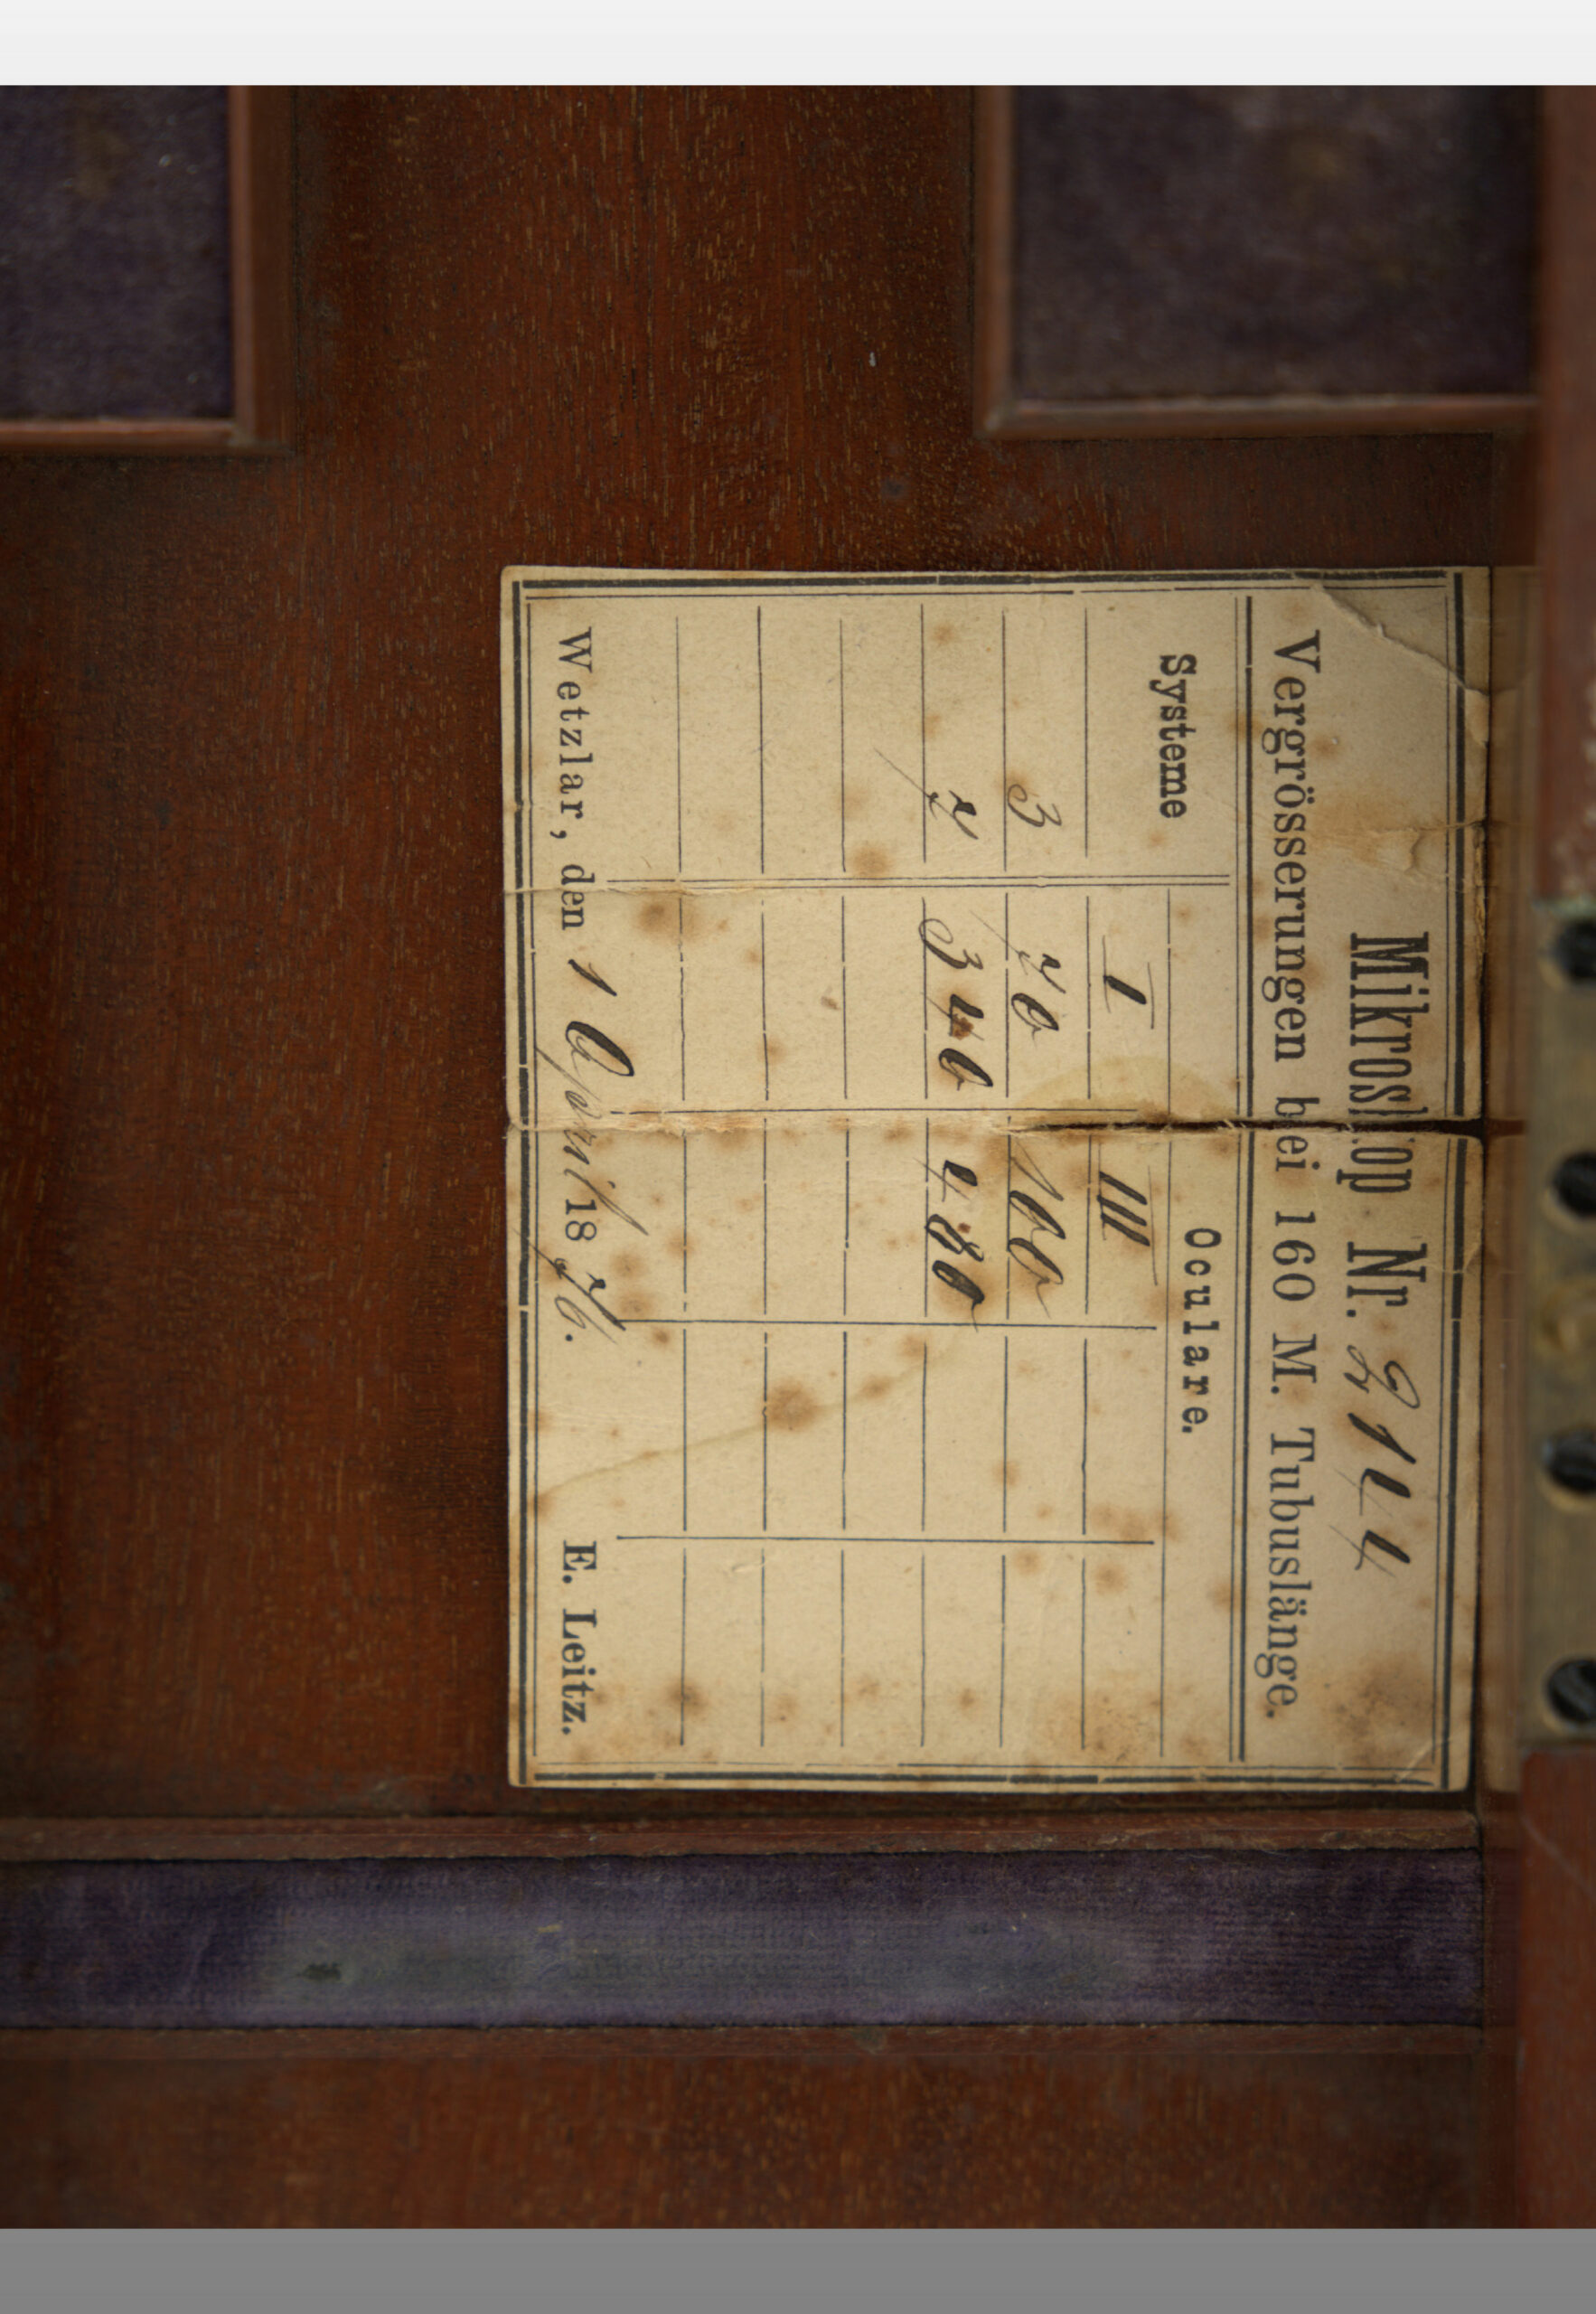 Mikroskop Nr. 2144
Vergrösserungen bei 160 M. Tubuslänge.
Systeme Oculare.
I III
3 70 100
7 340 480
Wetzlar, den 1 April 1876. E. Leitz.